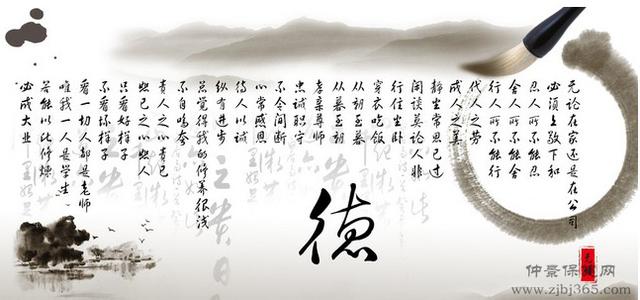 无论在家还是在公司
必须上敬下和
忍人所不能忍
舍人所不能舍
行人所不能行
代人之劳
成人之美
静坐常思己过
闲谈莫论人非
行住坐卧
穿衣吃饭
从暮至初
从暮至初
孝亲尊师
忠诚职守
不令间断
心常感恩
待人以诚
纵有进步
总觉得我的修养很浅
不自鸣夸
责人之心责己
恕己之心恕人
只看好样子
不看坏样子
看一切人都是老师
唯我一人是学生
若能以此修炼
必成大业
德
仲景保健网
www.zjbj365.com